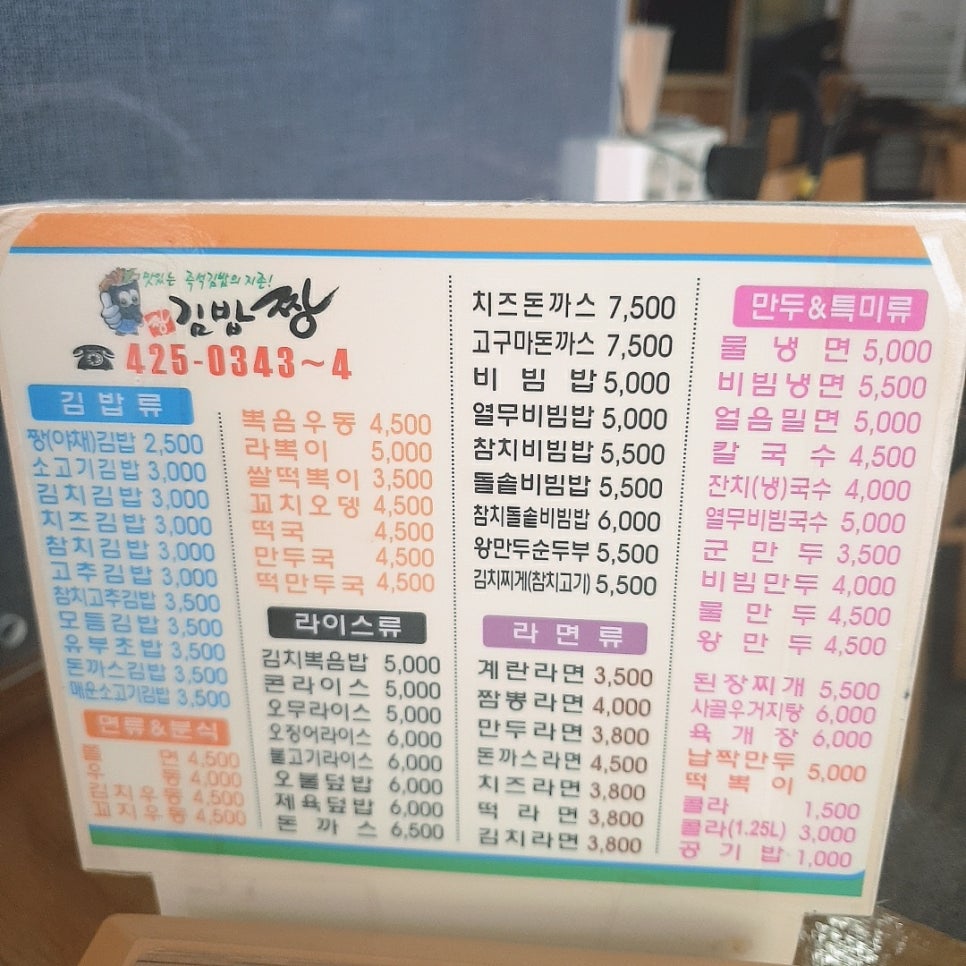 맛있는 즉석김밥의 지존!
짱 김밥짱
425-0343~4
김밥류
짱(야채)김밥 2,500
소고기김밥 3,000
김치김밥 3,000
치즈김밥 3,000
참치김밥 3,000
고추김밥 3,000
참치고추김밥 3,500
모듬김밥 3,500
유부초밥 3,500
돈까스김밥 3,500
매운소고기김밥 3,500
면류&분식
쫄면 4,500
우동 4,000
김치우동 4,500
꼬치우동 4,500
볶음우동 4,500
라뽁이 5,000
쌀떡뽁이 3,500
꼬치오뎅 4,500
떡국 4,500
만두국 4,500
떡만두국 4,500
라이스류
김치볶음밥 5,000
콘라이스 5,000
오무라이스 5,000
오징어라이스 6,000
불고기라이스 6,000
오불덮밥 6,000
제육덮밥 6,000
돈까스 6,500
치즈돈까스 7,500
고구마돈까스 7,500
비빔밥 5,000
열무비빔밥 5,000
참치비빔밥 5,500
돌솥비빔밥 5,500
참치돌솥비빔밥 6,000
왕만두순두부 5,500
김치찌게(참치고기) 5,500
라면류
계란라면 3,500
짬뽕라면 4,000
만두라면 3,800
돈까스라면 4,500
치즈라면 3,800
떡라면 3,800
김치라면 3,800
만두&특미류
물냉면 5,000
비빔냉면 5,500
얼음밀면 5,000
칼국수 4,500
잔치(냉)국수 4,000
열무비빔국수 5,000
군만두 3,500
비빔만두 4,000
물만두 4,500
왕만두 4,500
된장찌개 5,500
사골우거지탕 6,000
육개장 6,000
납짝만두
떡뽁이 5,000
콜라 1,500
콜라(1.25L) 3,000
공기밥 1,000